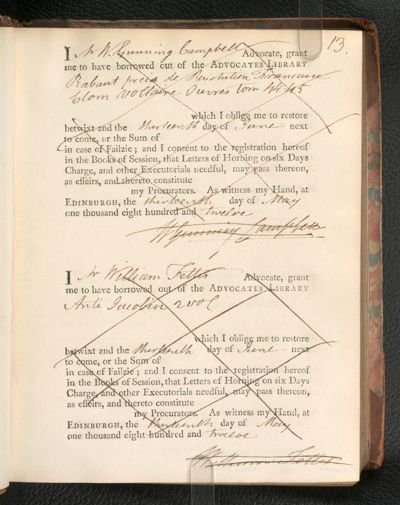 13.
I Mr W. Gunning Campbell Advocate, grant
me to have borrowed out of the ADVOCATES LIBRARY
Rabaut precis de Revolution Francaise
tom Voltaire Oeuvres tom 44 45
which I oblige me to restore
betwixt and the thirteenth day of June next
to come, or the Sum of
in case of Failzie; and I consent to the registration hereof
in the Books of Session, that Letters of Horning on six Days
Charge, and other Executorials needful, may pass thereon,
as effeirs, and thereto constitute
my Procurators. As witness my Hand, at
EDINBURGH, the thirteenth day of May
one thousand eight hundred and twelve
W Gunning Campbell
I Mr William Fettes Advocate, grant
me to have borrowed out of the ADVOCATES LIBRARY
Anti Jacobin 2 vol
which I oblige me to restore
betwixt and the thirteenth day of June next
to come, or the Sum of
in case of Failzie; and I consent to the registration hereof
in the Books of Session, that Letters of Horning on six Days
Charge, and other Executorials needful, may pass thereon,
as effeirs, and thereto constitute
my Procurators. As witness my Hand, at
EDINBURGH, the thirteenth day of May
one thousand eight hundred and twelve
William Fettes